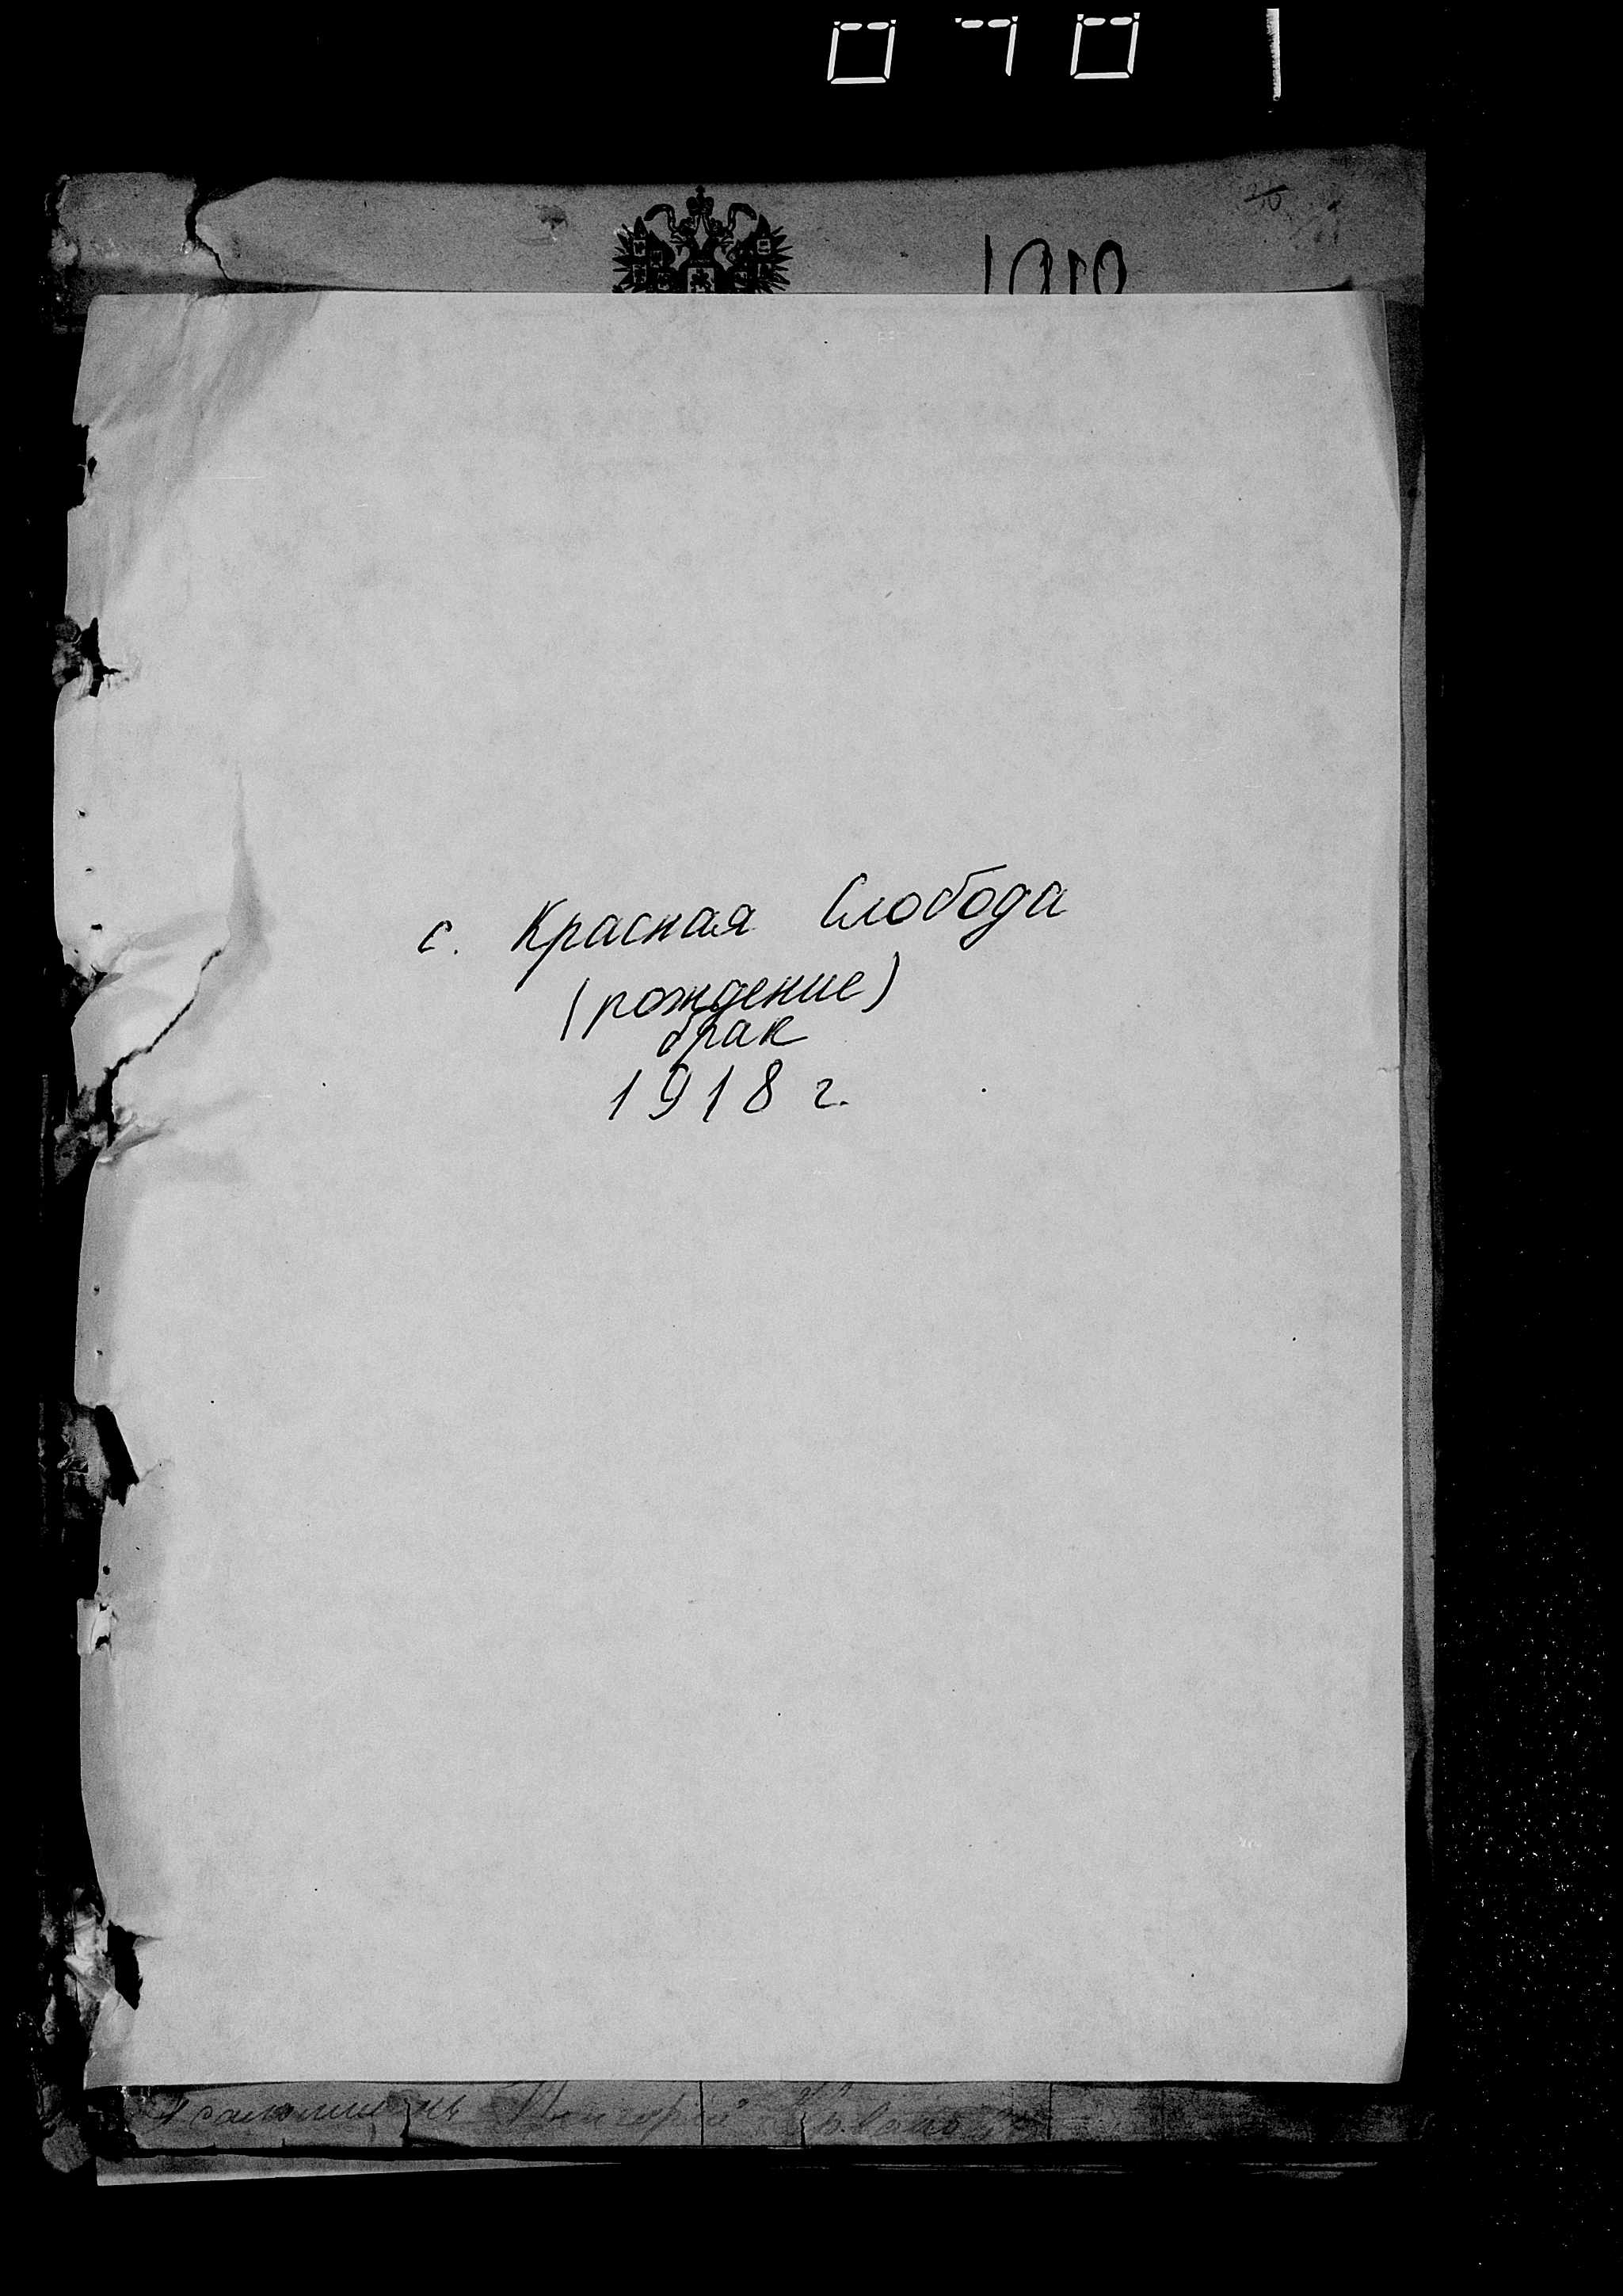 с. Красная Слобода
(рождение)
брак
1918 г.